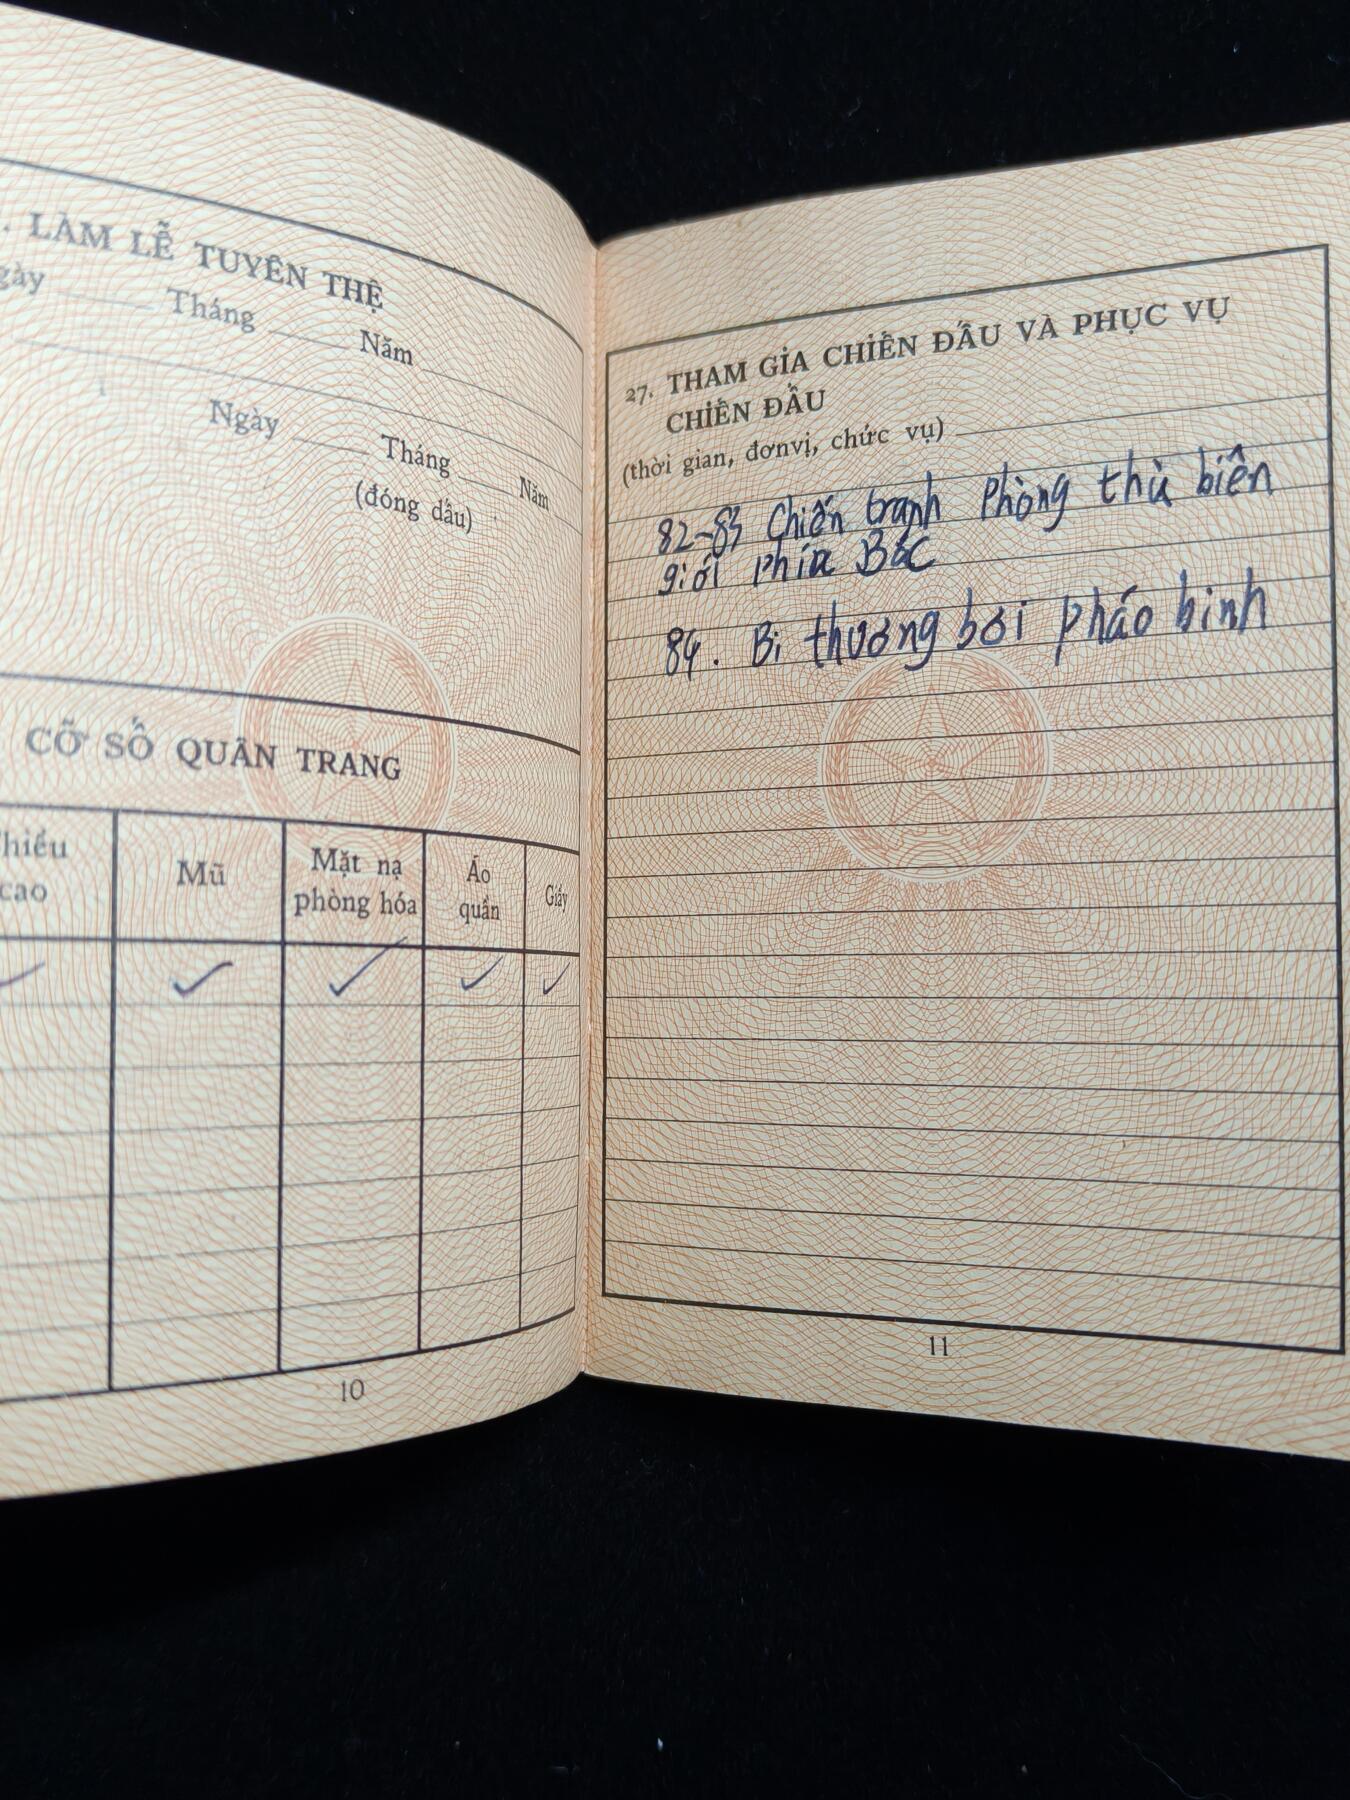 . LÀM LỄ TUYÊN THỆ
gày ____ Tháng ____ Năm ____
Ngày ____ Tháng ____ Năm
(đóng dấu)
CỠ SỐ QUÂN TRANG
hiều cao
Mũ
Mặt nạ phòng hóa
Áo quần
Giầy
✓ ✓ ✓ ✓ ✓
10
27. THAM GIA CHIẾN ĐẤU VÀ PHỤC VỤ
CHIẾN ĐẤU
(thời gian, đơnvị, chức vụ)
82-83 Chiến tranh Phòng thủ biên
giới phía Bắc
84. Bi thương bơi pháo binh
11